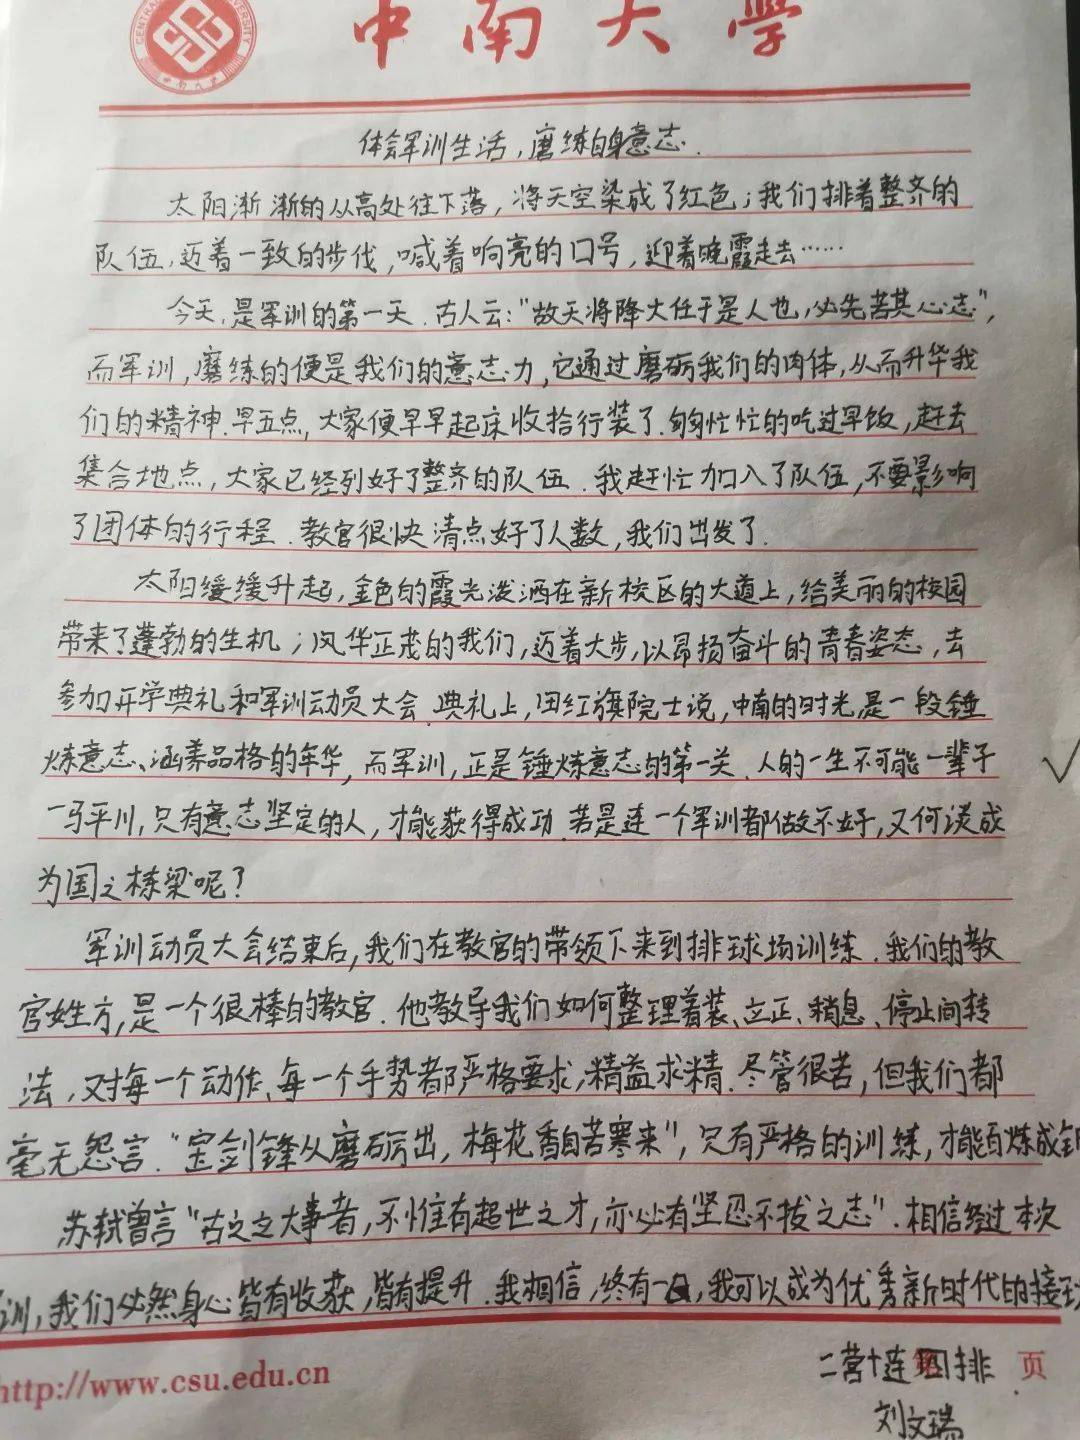 中南大学
体会军训生活,磨练自身意志.
太阳渐渐的从高处往下落,将天空染成了红色;我们排着整齐的
队伍,迈着一致的步伐,喊着响亮的口号,迎着晚霞走去……
今天,是军训的第一天.古人云:"故天将降大任于是人也,必先苦其心志",
而军训,磨练的便是我们的意志力,它通过磨砺我们的肉体,从而升华我
们的精神.早五点,大家便早早起床收拾行装了.匆匆忙忙的吃过早饭,赶去
集合地点,大家已经列好了整齐的队伍.我赶忙加入了队伍,不要影响
了团体的行程.教官很快清点好了人数,我们出发了.
太阳缓缓升起,金色的霞光泼洒在新校区的大道上,给美丽的校园
带来了蓬勃的生机;风华正茂的我们,迈着大步,以昂扬奋斗的青春姿态,去
参加开学典礼和军训动员大会.典礼上,田红旗院士说,中南的时光是一段锤
炼意志、涵养品格的年华,而军训,正是锤炼意志的第一关.人的一生不可能一辈子
一马平川,只有意志坚定的人,才能获得成功.若是连一个军训都做不好,又何谈成
为国之栋梁呢?
军训动员大会结束后,我们在教官的带领下来到排球场训练.我们的教
官姓方,是一个很棒的教官.他教导我们如何整理着装、立正、稍息、停止间转
法,对每一个动作、每一个手势都严格要求,精益求精.尽管很苦,但我们都
毫无怨言."宝剑锋从磨砺出,梅花香自苦寒来",只有严格的训练,才能百炼成钢
苏轼曾言"古之立大事者,不惟有超世之才,亦必有坚忍不拔之志".相信经过本次
训,我们必然身心皆有收获,皆有提升.我相信,终有一日,我可以成为优秀新时代的接班
http://www.csu.edu.cn
二营十连四排
页
刘文瑞